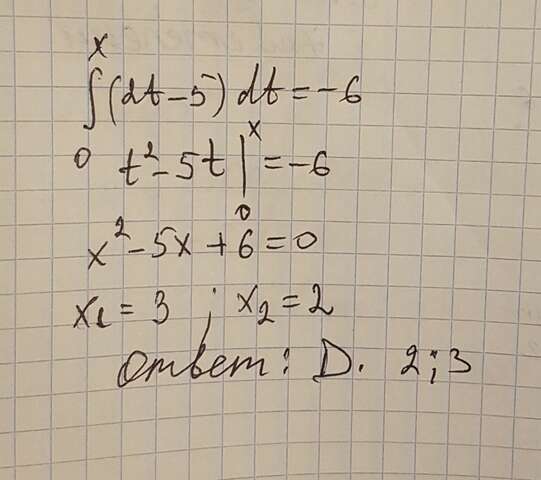 ∫₀ˣ (2t – 5) dt = –6
t² – 5t |₀ˣ = –6
x² – 5x + 6 = 0
x₁ = 3 ; x₂ = 2
Ответ: D. 2;3